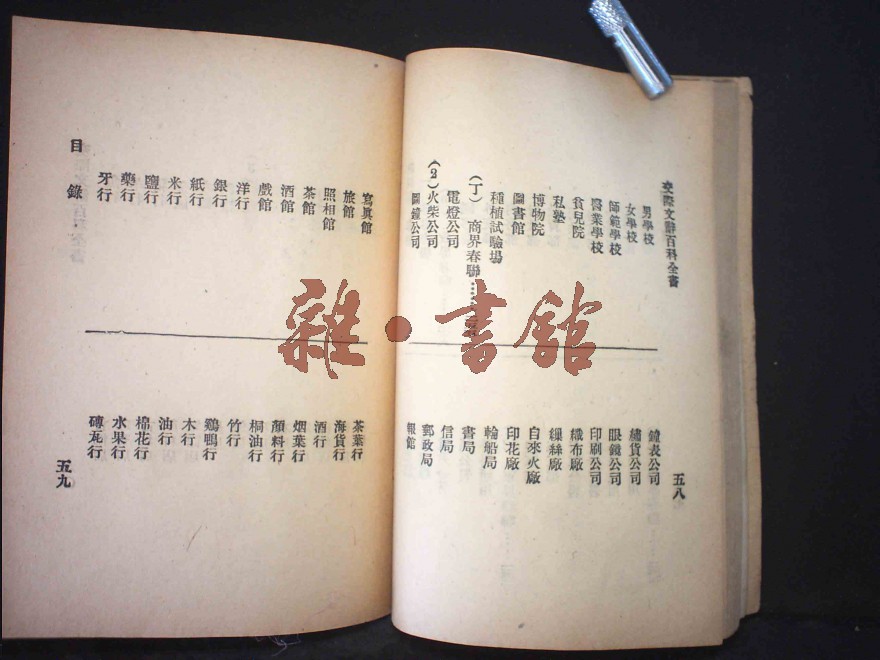 交際文辭百科全書
男學校
女學校
師範學校
醫業學校
貧兒院
私塾
博物院
圖書館
種植試驗場
(丁) 商界春聯
電燈公司
(2)火柴公司
鐘公司
鐘表公司
繡貨公司
眼鏡公司
印刷公司
織布廠
繅絲廠
自來火廠
印花廠
輪船局
書局
信局
郵政局
報館
五八
寫眞館
旅館
照相館
茶館
酒館
戲館
洋行
銀行
紙行
米行
鹽行
藥行
牙行
茶葉行
海貨行
酒行
烟葉行
顏料行
桐油行
竹行
鷄鴨行
木行
油行
棉花行
水果行
磚瓦行
目錄
五九
雜·書館